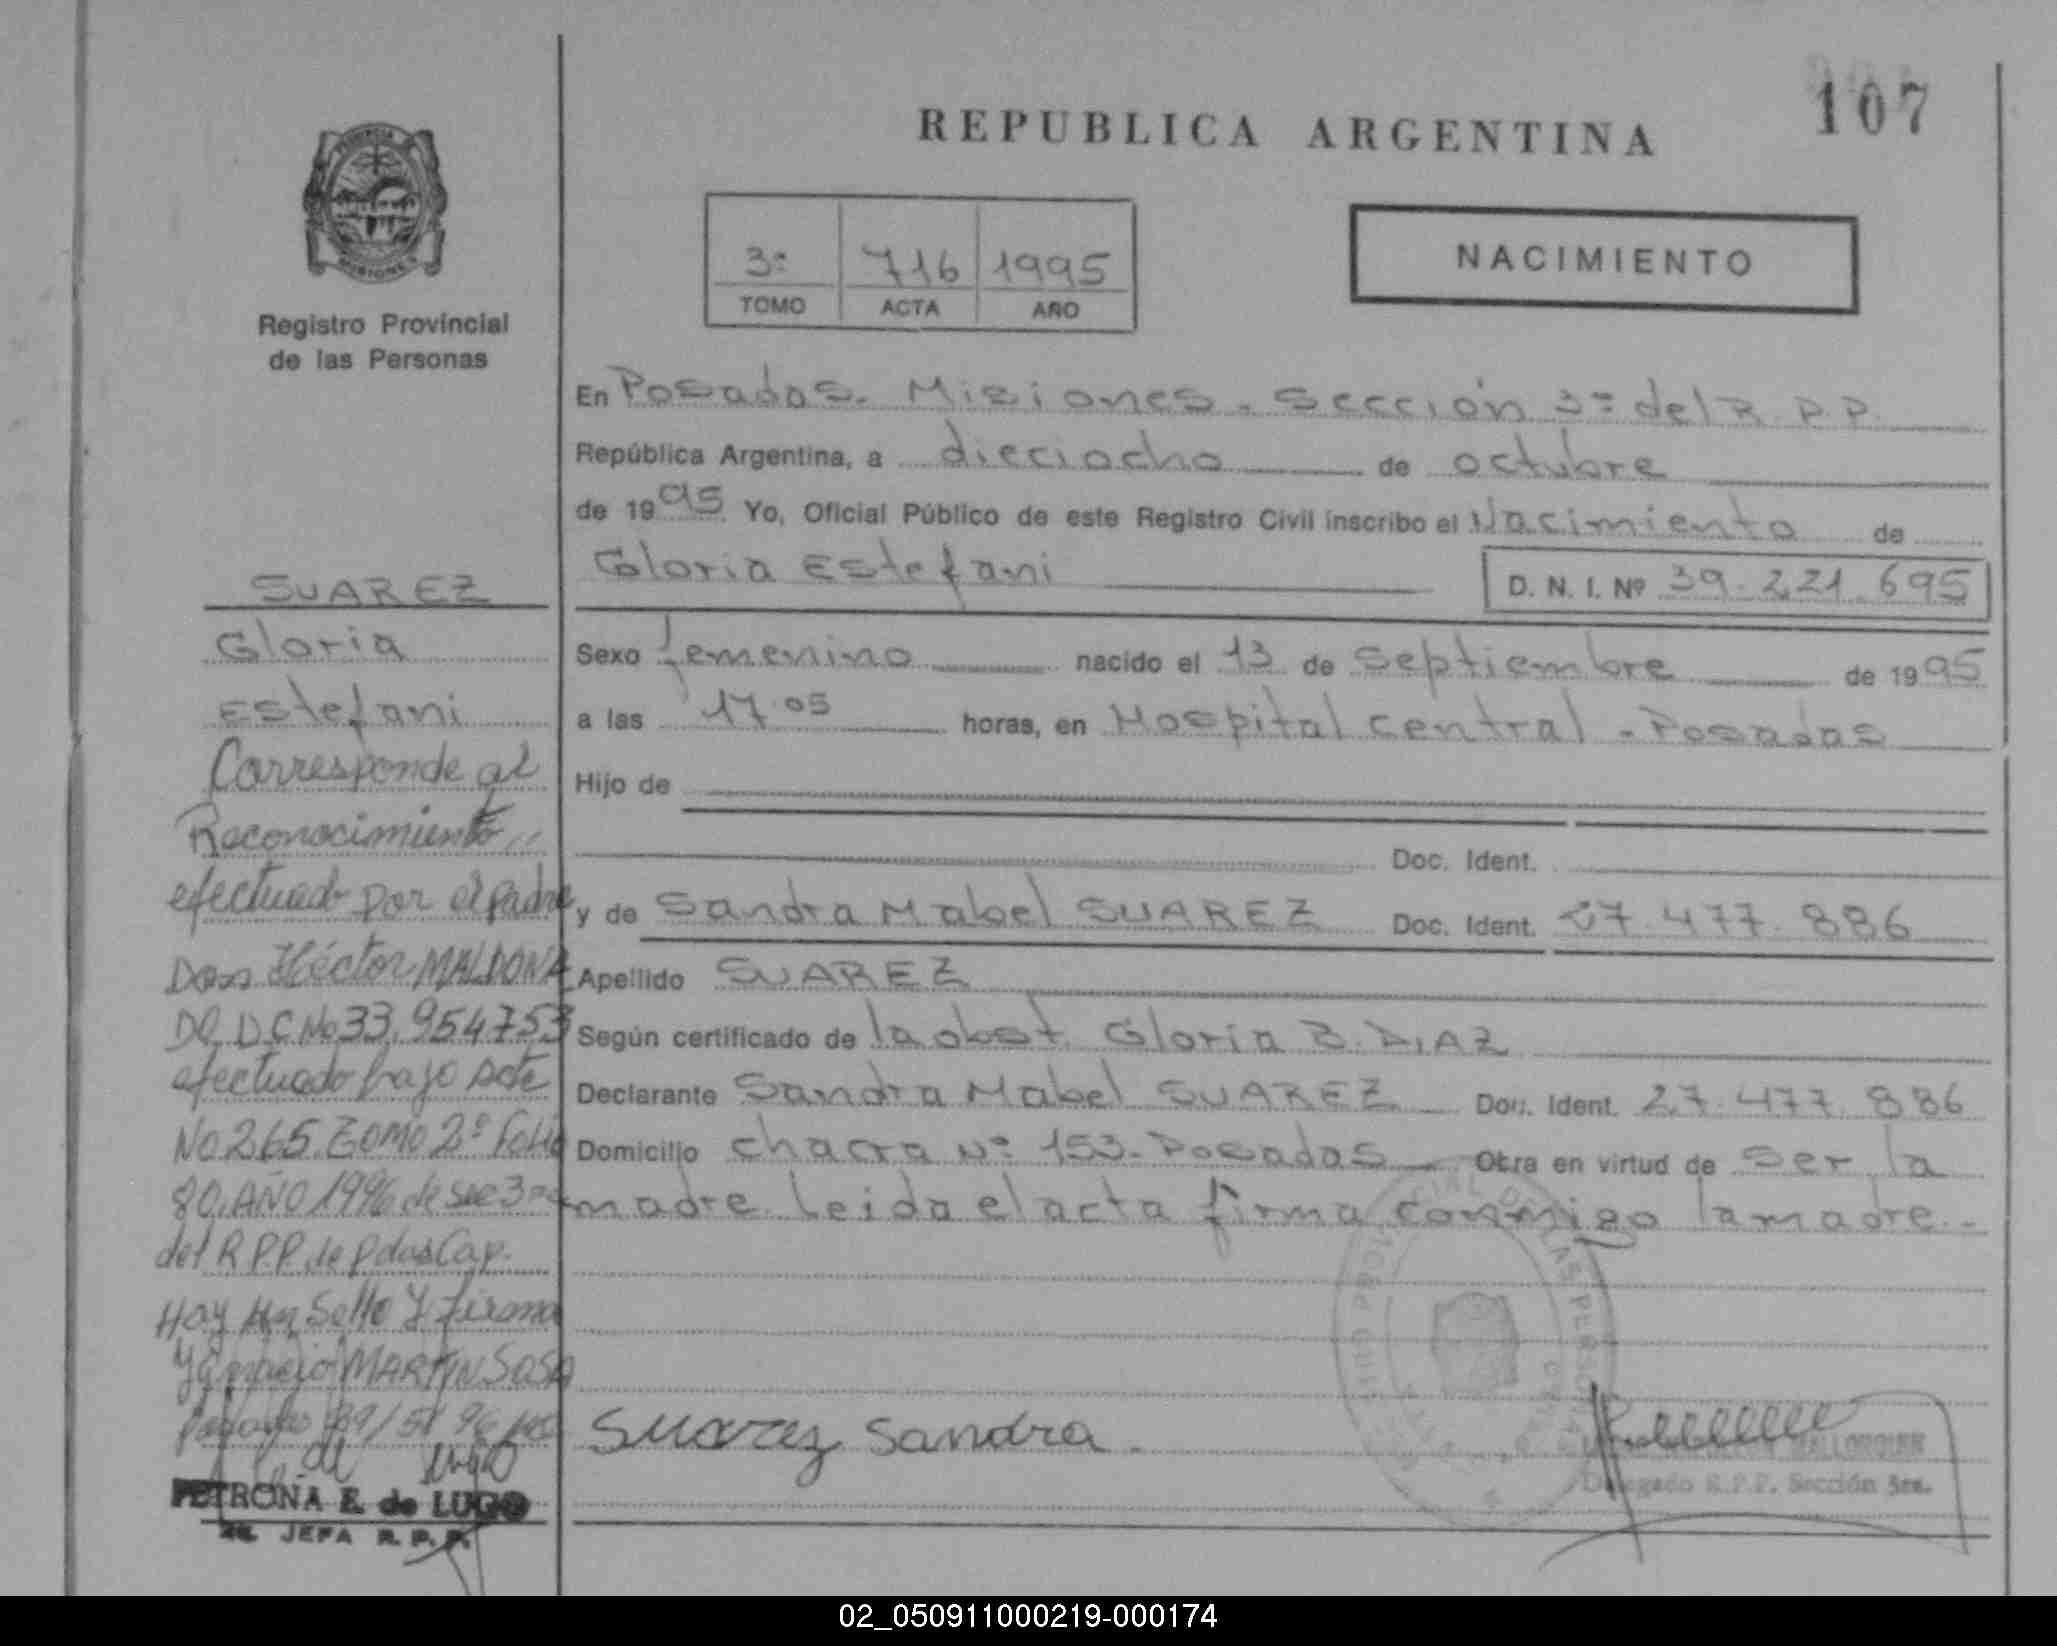 107
REPUBLICA ARGENTINA
NACIMIENTO
3º 716 1995
TOMO ACTA AÑO
PROVINCIA
MISIONES
Registro Provincial
de las Personas
SUAREZ
Gloria
Estefani
Corresponde al
Reconocimiento
efectuado por el padre
Don Héctor MALDONA
DO D.C. No 33.954753
efectuado bajo Acta
No 265. Tomo 2º Folio
80. AÑO 1996 de sec 3ra
del R.P.P. de Pdas Cap.
Hay un Sello y firma
MARTIN SOSA
Posadas 5/96
PETRONA E. de LUGO
JEFA R. P. P.
En Posadas. Misiones. Sección 3º del R. P. P.
República Argentina, a dieciocho de octubre
de 1995 Yo, Oficial Público de este Registro Civil inscribo el Nacimiento de
Gloria Estefani D. N. I. Nº 39.221.695
Sexo femenino nacido el 13 de Septiembre de 1995
a las 17.05 horas, en Hospital central - Posadas
Hijo de
Doc. Ident.
y de Sandra Mabel SUAREZ Doc. Ident. 27.477.886
Apellido SUAREZ
Según certificado de la obst. Gloria B. DIAZ
Declarante Sandra Mabel SUAREZ Doc. Ident. 27.477.886
Domicilio chacra Nº 153-Posadas Obra en virtud de ser la
madre. Leida el acta firma conmigo la madre.-
Suarez Sandra.
MALLORQUIN
Delegado R.P.P. Sección 3ra.
02_050911000219-000174